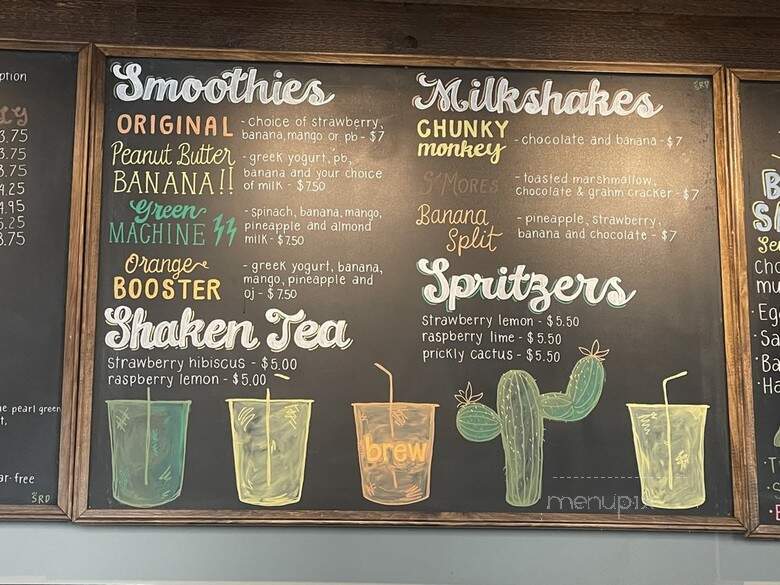 ption
LY
3.75
3.75
3.75
4.25
4.95
5.25
3.75
e pearl green
t,
ar-free
SRD
Smoothies
ORIGINAL - choice of strawberry,
banana, mango or pb - $7
Peanut Butter
BANANA!! - greek yogurt, pb,
banana and your choice
of milk - $7.50
Green
MACHINE - spinach, banana, mango,
pineapple and almond
milk - $7.50
Orange
BOOSTER - greek yogurt, banana,
mango, pineapple and
oj - $7.50
Shaken Tea
strawberry hibiscus - $5.00
raspberry lemon - $5.00
brew
Milkshakes
SRD
CHUNKY
monkey - chocolate and banana - $7
S'MORES - toasted marshmallow,
chocolate & grahm cracker - $7
Banana
Split - pineapple, strawberry,
banana and chocolate - $7
Spritzers
strawberry lemon - $5.50
raspberry lime - $5.50
prickly cactus - $5.50
menupix
B
S
Se
Cho
mu
· Eg
· Sa
· Ba
· Ha